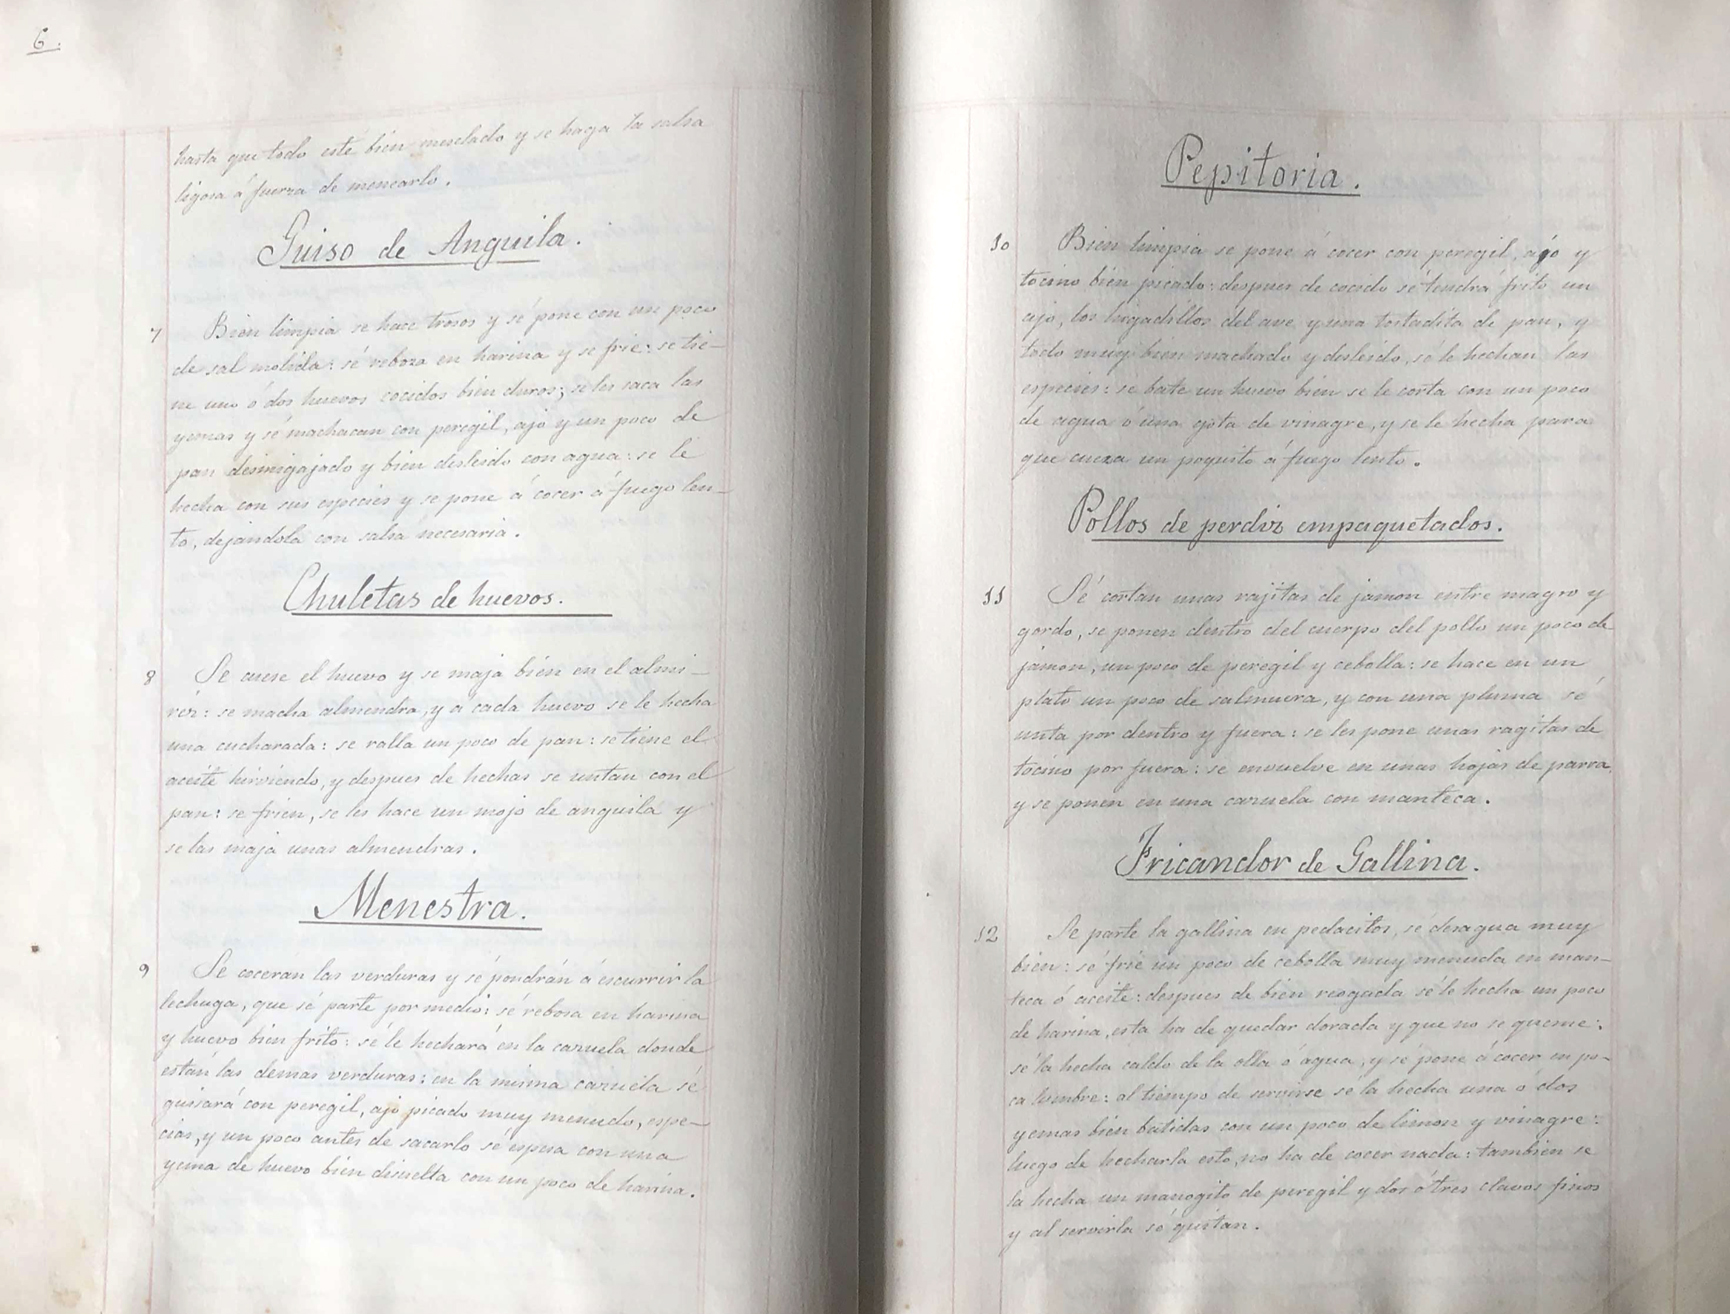 6.
hasta que todo esté bien mesclado y se haga la salsa
ligosa á fuerza de menearlo.
Guiso de Anguila.
7 Bien limpia se hace trosos y sé pone con un poco
de sal molida: sé reboza en harina y se frie: se tie-
ne uno ó dos huevos cocidos bien duros; se les saca las
yemas y sé machacan con peregil, ajo y un poco de
pan desmigajado y bien desleido con agua: se le
hecha con sus especies y se pone á cocer á fuego len-
to, dejándola con salsa necesaria.
Chuletas de huevos.
8 Se cuese el huevo y se maja bien en el almi-
réz: se macha almendra, y á cada huevo se le hecha
una cucharada: se ralla un poco de pan: se tiene el
aceite hirviendo, y despues de hechas se untan con el
pan: se frien, se les hace un mojo de anguila y
se las maja unas almendras.
Menestra.
9 Se coceran las verduras y sé pondrán á escurrir la
lechuga, que sé parte por medio: sé rebosa en harina
y huevo bien frito: sé le hechará en la cazuela donde
están las demas verduras: en la misma cazuela sé
guisará con peregil, ajo picado muy menudo, espe-
cias, y un poco antes de sacarlo sé espesa con una
yema de huevo bien disuelta con un poco de harina.
Pepitoria.
10 Bien limpia se pone á cocer con peregil, ajo y
tocino bien picado: despues de cocido sé tendrá frito un
ajo, los higadillos del ave, y una tostadita de pan, y
todo muy bien machado y desleido, sé le hechan las
especies: se bate un huevo bien se le corta con un poco
de agua ó una gota de vinagre, y se le hecha para
que cueza un poquito á fuego lento.
Pollos de perdiz empaquetados.
11 Sé cortan unas rajitas de jamon entre magro y
gordo, se ponen dentro del cuerpo del pollo un poco de
jamon, un poco de peregil y cebolla: se hace en un
plato un poco de salmuera, y con una pluma sé
unta por dentro y fuera: se les pone unas ragitas de
tocino por fuera: se envuelve en unas hojas de parra,
y se ponen en una cazuela con manteca.
Fricandor de Gallina.
12 Se parte la gallina en pedacitos, sé desagua muy
bien: se frie un poco de cebolla muy menuda en man-
teca ó aceite: despues de bien reogada sé le hecha un poco
de harina, esta ha de quedar dorada y que no se queme:
sé la hecha caldo de la olla ó agua, y sé pone á cocer en po-
ca lumbre: al tiempo de servirse sé la hecha una ó dos
yemas bien batidas con un poco de limon y vinagre:
luego de hecharla esto, no ha de cocer nada: tambien se
la hecha un manogito de peregil y dos ó tres clavos finos
y al servirla sé quitan.